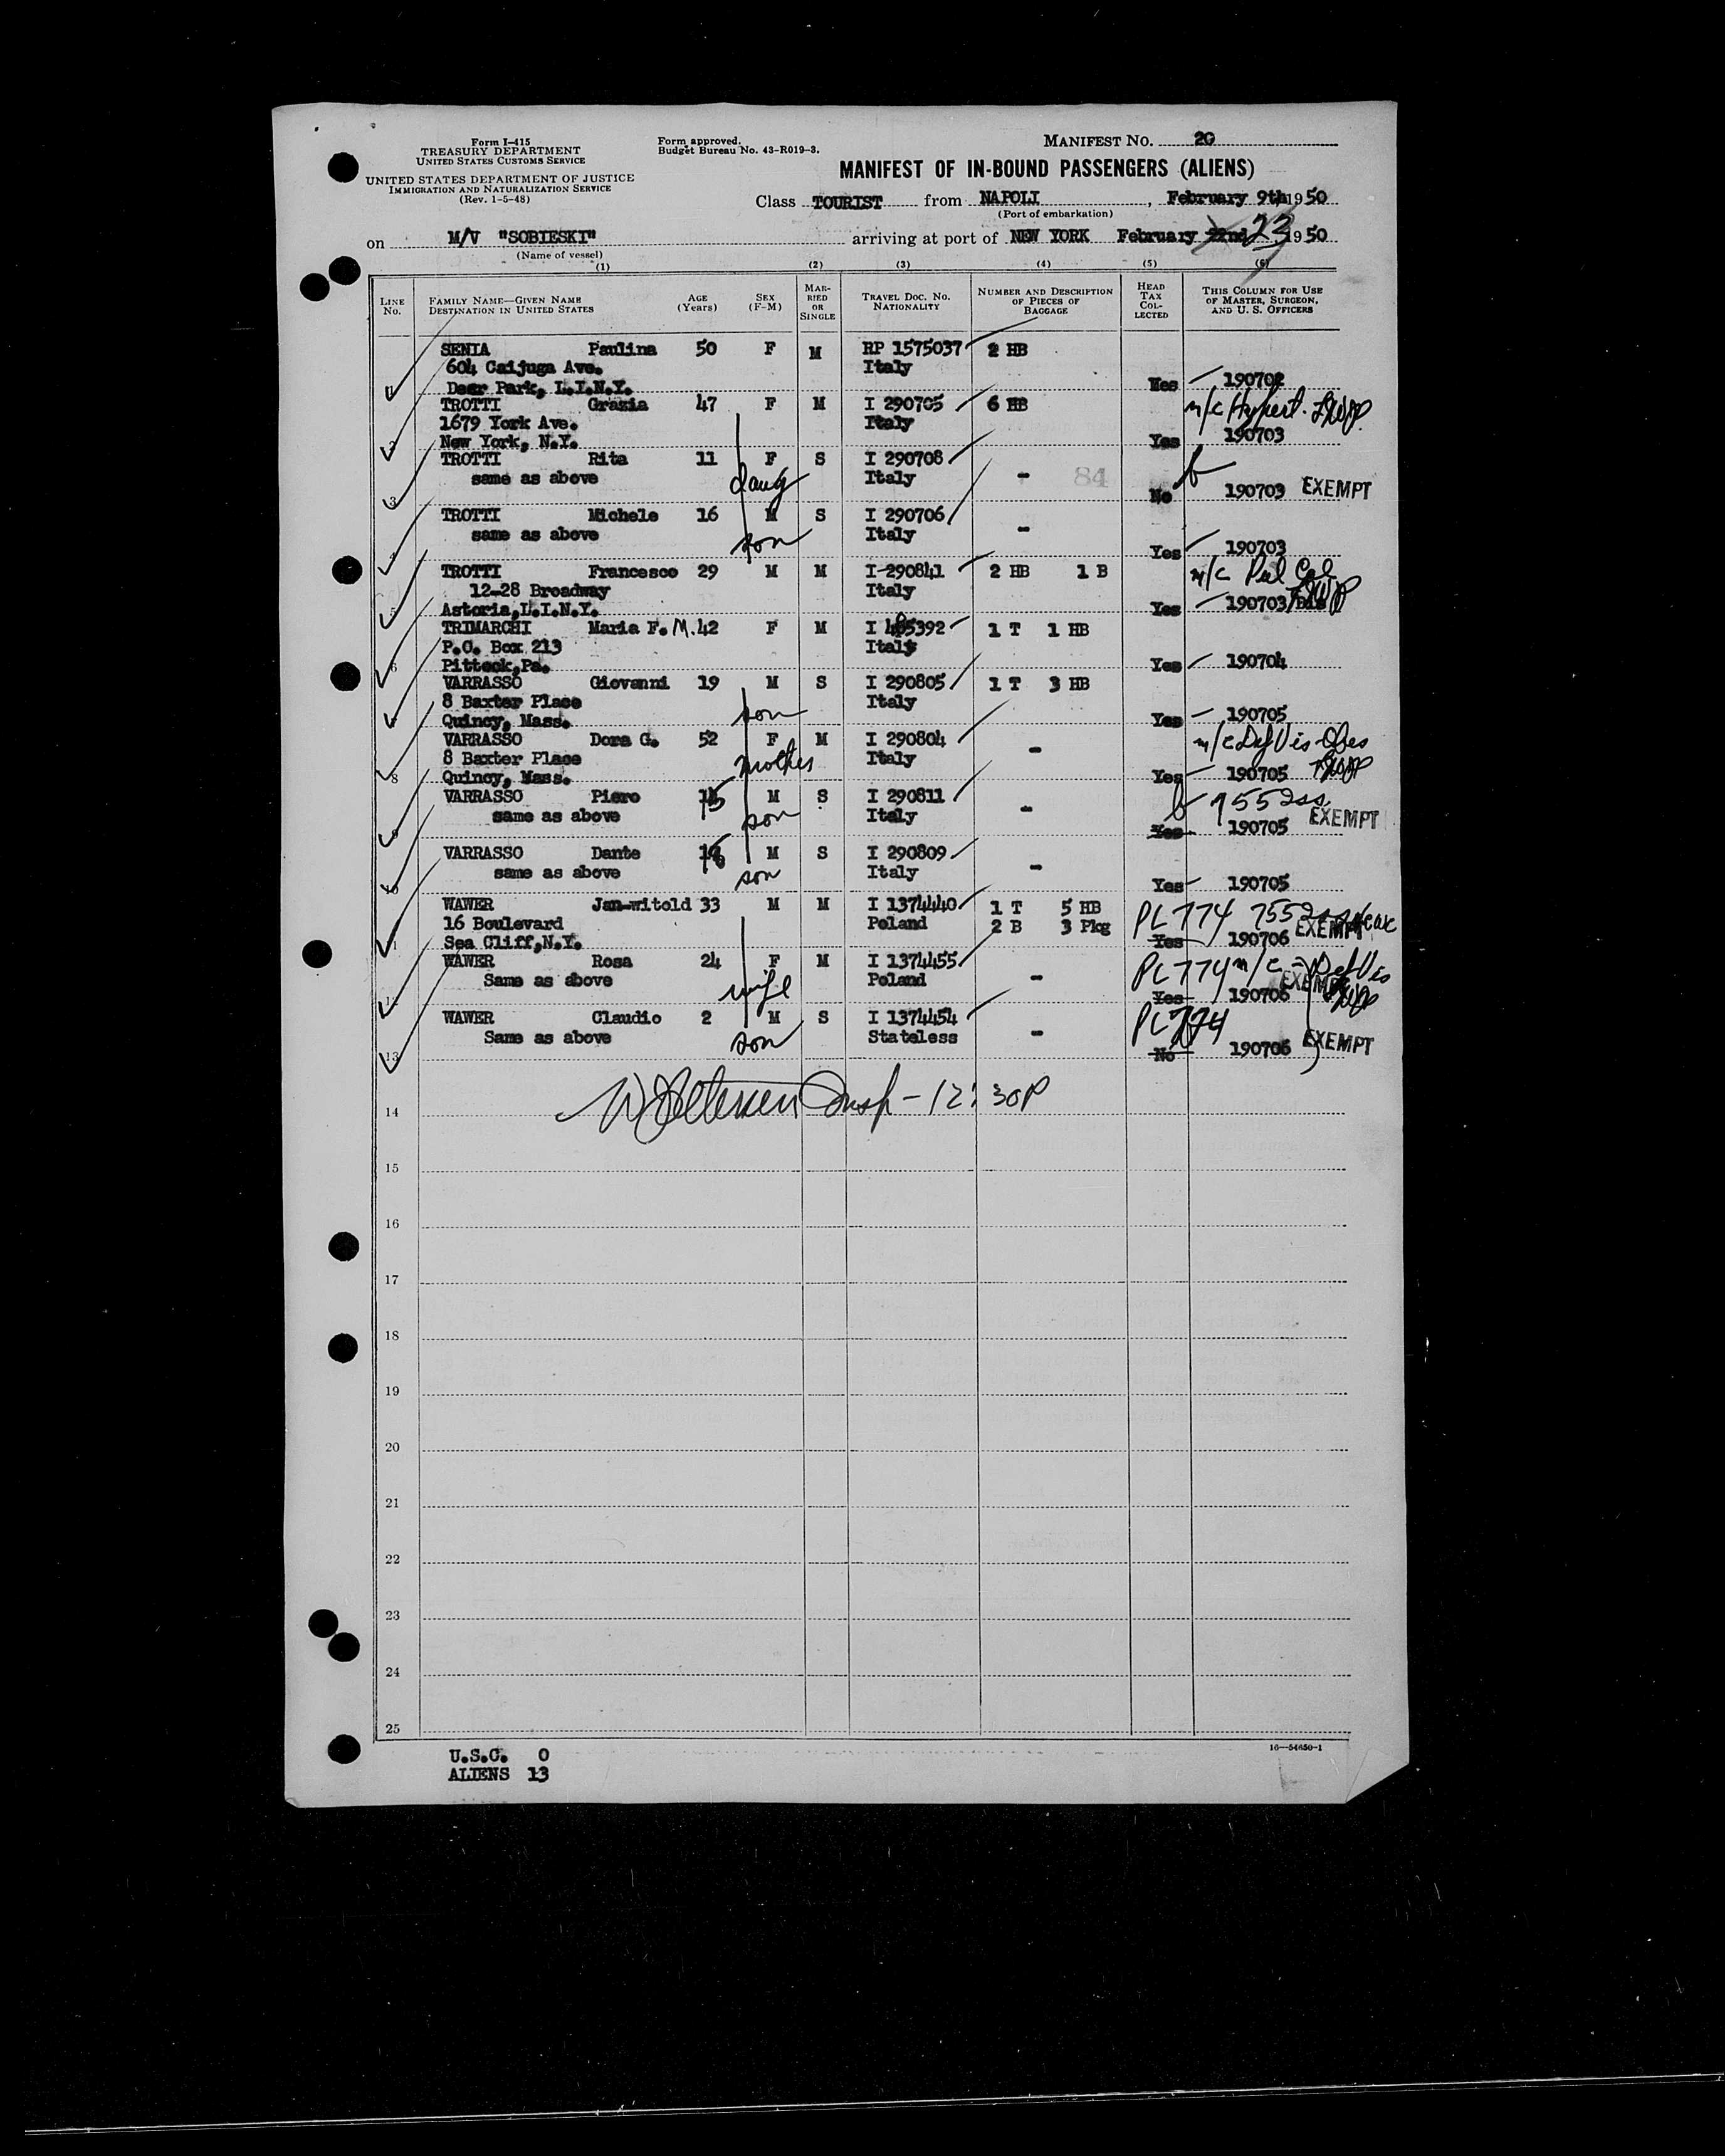 Form I-415
TREASURY DEPARTMENT
UNITED STATES CUSTOMS SERVICE
UNITED STATES DEPARTMENT OF JUSTICE
IMMIGRATION AND NATURALIZATION SERVICE
(Rev. 1-5-48)
Form approved.
Budget Bureau No. 43-R019-3.
MANIFEST NO. 20
MANIFEST OF IN-BOUND PASSENGERS (ALIENS)
Class TOURIST from NAPOLI, February 9th, 1950
(Port of embarkation)
on M/V "SOBIESKI" arriving at port of NEW YORK February 22nd 23, 1950
(Name of vessel)
(1) (2) (3) (4) (5) (6)
LINE No. FAMILY NAME—GIVEN NAME DESTINATION IN UNITED STATES AGE (Years) SEX (F-M) MARRIED OR SINGLE TRAVEL DOC. NO. NATIONALITY NUMBER AND DESCRIPTION OF PIECES OF BAGGAGE HEAD TAX COLLECTED THIS COLUMN FOR USE OF MASTER, SURGEON, AND U. S. OFFICERS
SENIA Paulina 50 F M RP 1575037 2 HB
604 Caijuga Ave. Italy
1 Deer Park, L.I.N.Y. Yes 190702
TROTTI Grazia 47 F M I 290705 6 HB m/c Hypert.
1679 York Ave. Italy
2 New York, N.Y. Yes 190703
TROTTI Rita 11 F S I 290708
same as above daug Italy - 84
3 No 190703 EXEMPT
TROTTI Michele 16 M S I 290706
same as above son Italy -
4 Yes 190703
TROTTI Francesco 29 M M I-290841 2 HB 1 B m/c
12-28 Broadway Italy
5 Astoria,L.I.N.Y. Yes 190703
TRIMARCHI Maria F. M. 42 F M I 485392 1 T 1 HB
P.O. Box 213 Italy
6 Pittock,Pa. Yes 190704
VARRASSO Giovanni 19 M S I 290805 1 T 3 HB
8 Baxter Place Italy
7 Quincy, Mass. son Yes 190705
VARRASSO Dora G. 52 F M I 290804 - m/c Def Vis-Obes
8 Baxter Place mother Italy
8 Quincy, Mass. Yes 190705
VARRASSO Piero 15 M S I 290811 - 7552ss
same as above son Italy EXEMPT
9 Yes 190705
VARRASSO Dante 16 M S I 290809
same as above son Italy -
10 Yes 190705
WAWER Jan-witold 33 M M I 1374440 1 T 5 HB PL 774 7552ss
16 Boulevard Poland 2 B 3 Pkg EXEMPT
11 Sea Cliff,N.Y. Yes 190706
WAWER Rosa 24 F M I 1374455 PL 774 m/c - Def Vis
Same as above wife Poland - EXEMPT
12 Yes 190706
WAWER Claudio 2 M S I 1374454 PL 774
Same as above son Stateless -
13 No 190706 EXEMPT
Insp - 12:30P
14
15
16
17
18
19
20
21
22
23
24
25
U.S.C. 0
ALIENS 13
16—54650-1